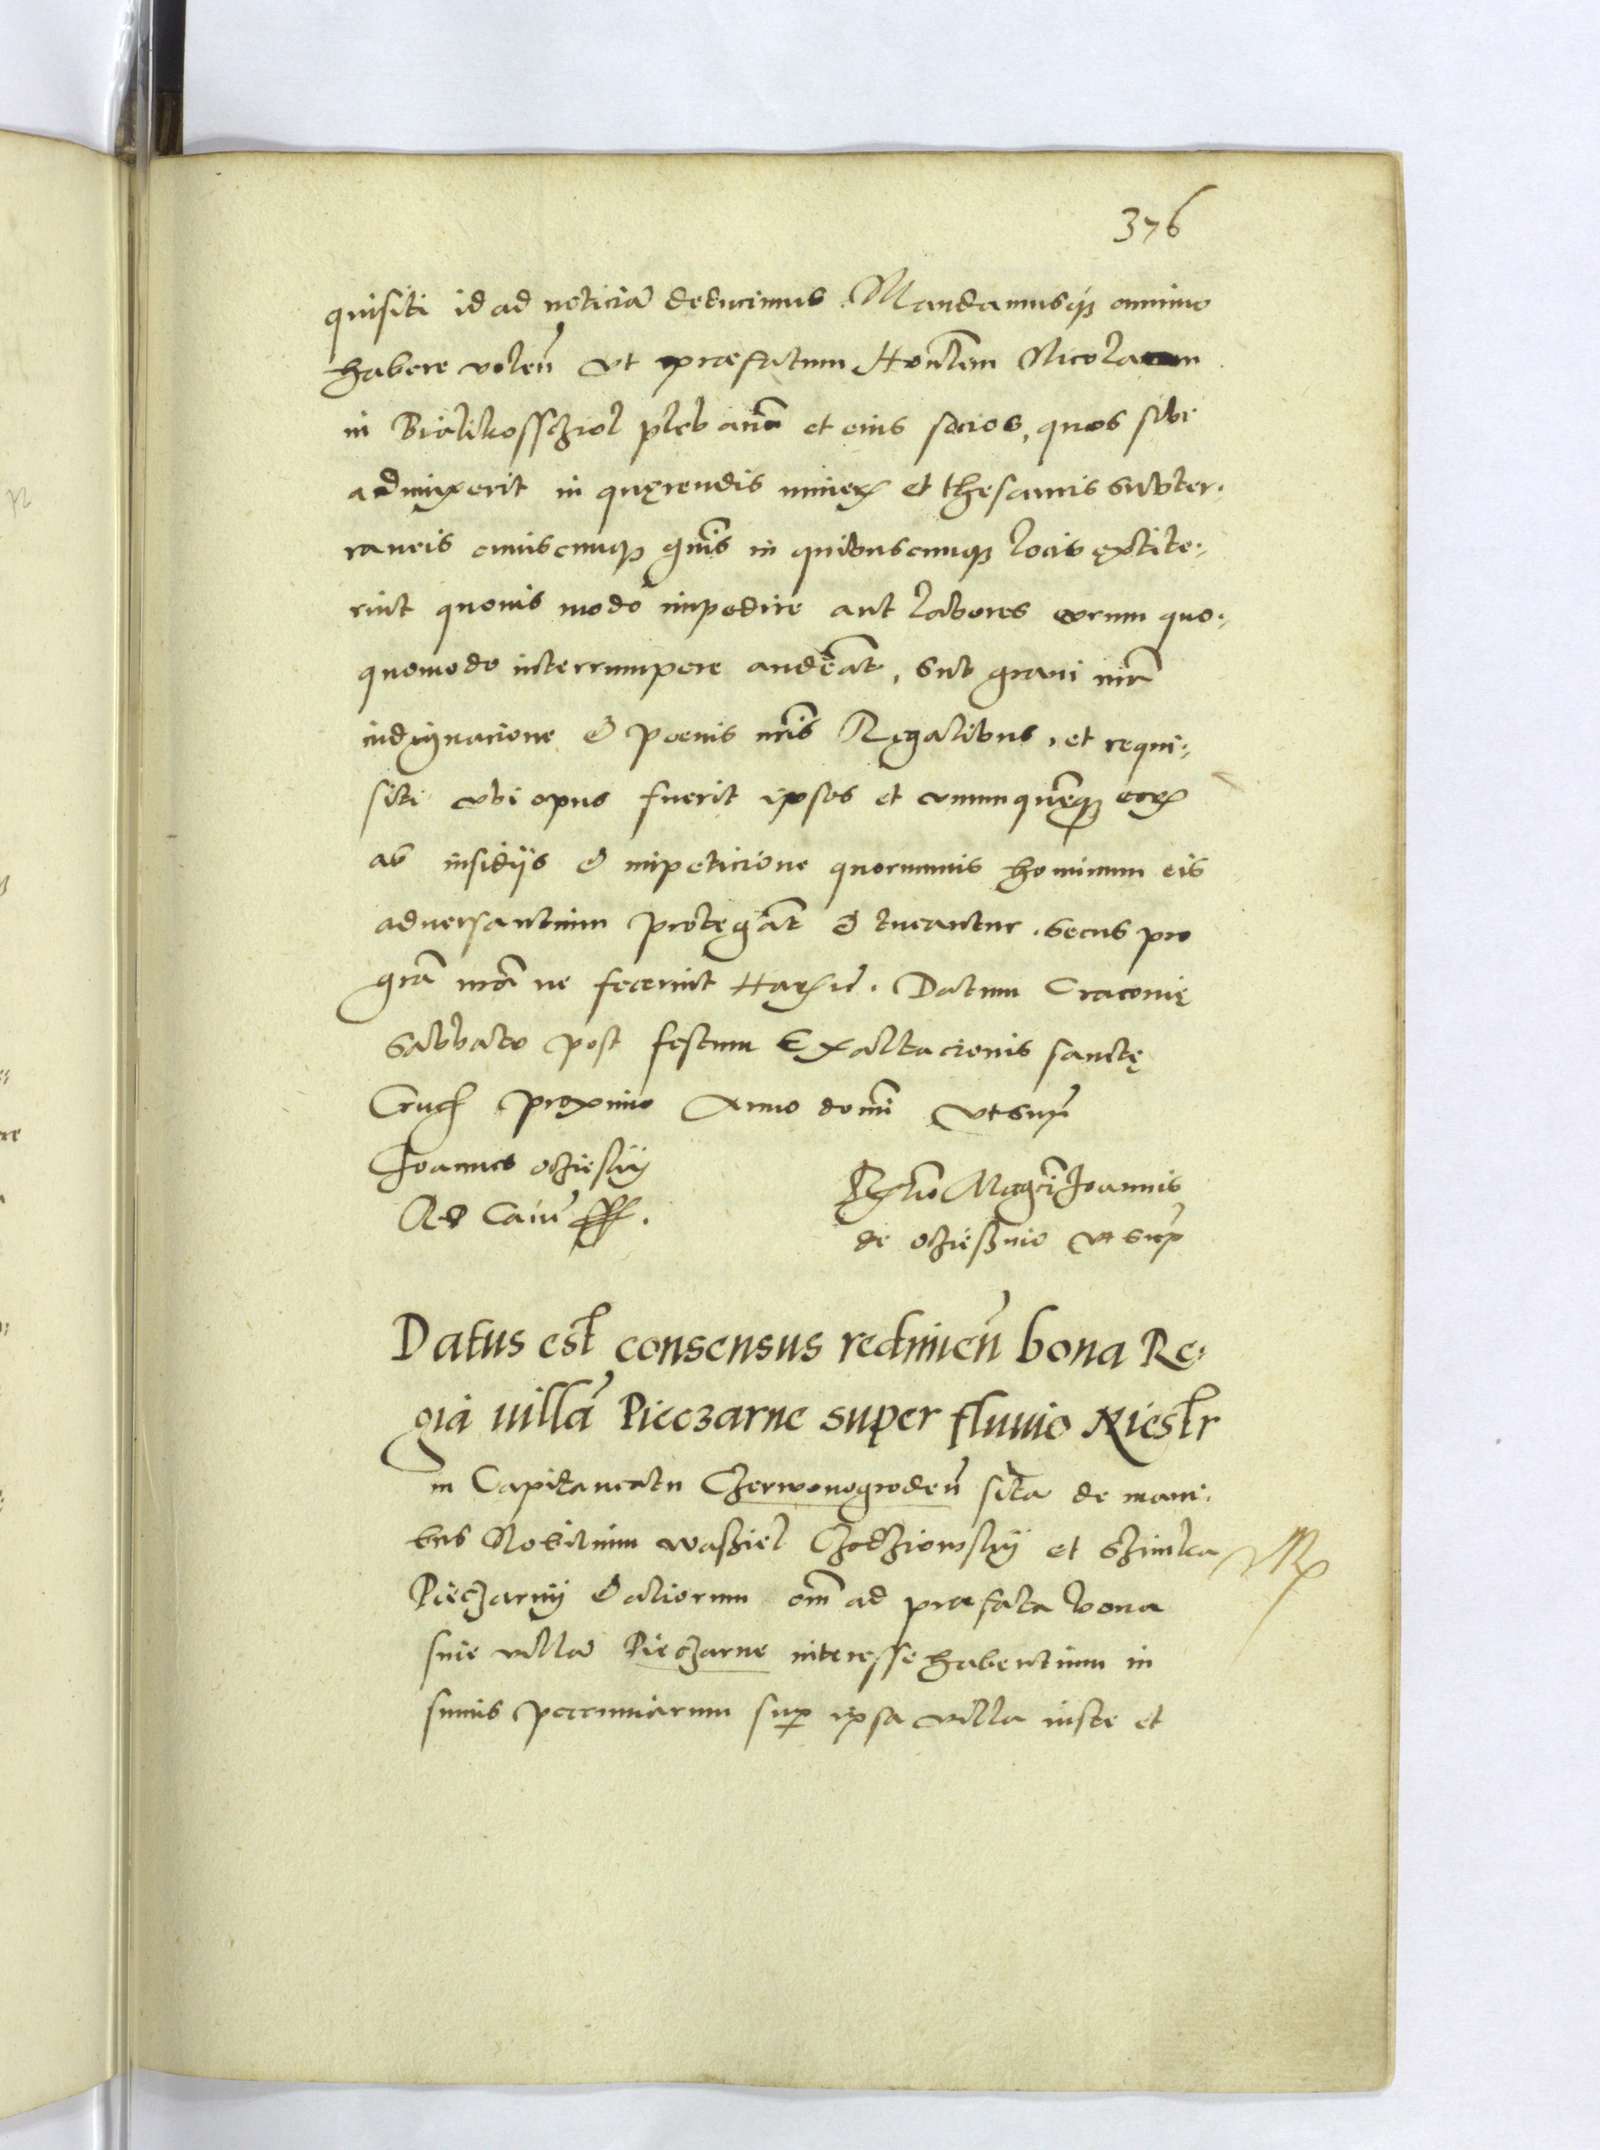 376
quisiti id ad noticiā deducimus. Mandamusq̨ omnino
habere volen̄ vt præfatum Hon̄lem Nicolaum
in Bialikosscziol plebanū et eius socios, quos sibi
adiunxerit in quęrendis miner̨ et thesauris subter.
raneis cuiuscunq̨ gn̄is in quibuscunq̨ locis extite.
rint quouis modo impedire aut labores eorum quo.
quomodo interrumpere audeāt, sub graui nr̄a
indignacione & poenis nr̄is Regalibus, et requi.
siti vbi opus fuerit ipsos et vnumquēq̨ eor̨
ab insidijs & impeticione quorumuis hominum eis
aduersantium protegāt & tueantur. secus pro
gr̄a nr̄a ne fecerint Har̨ū. Datum Cracouię
Sabbato post festum Exaltacionis sanctę
Cruc̨ proximo Anno domī vt supr̄
Joannes oczieskij
R P Canc̄
Rel̄io Magcī Joannis
de oczieszino vt sup̄
Datus est consensus redimen̄ bona Re.
gia uillā Pieczarne super fluuio Niestr
in Capitaneatu Czerwonogroden̄ sita de mani.
bus Nobilium wasziel Chodziowskij et Szimka
Pieczarnij & aliorum om̄ ad præfata bona
siue villā Pieczarne interesse habentium in
sumis pecuniarum sup̄ ipsa villa iuste et